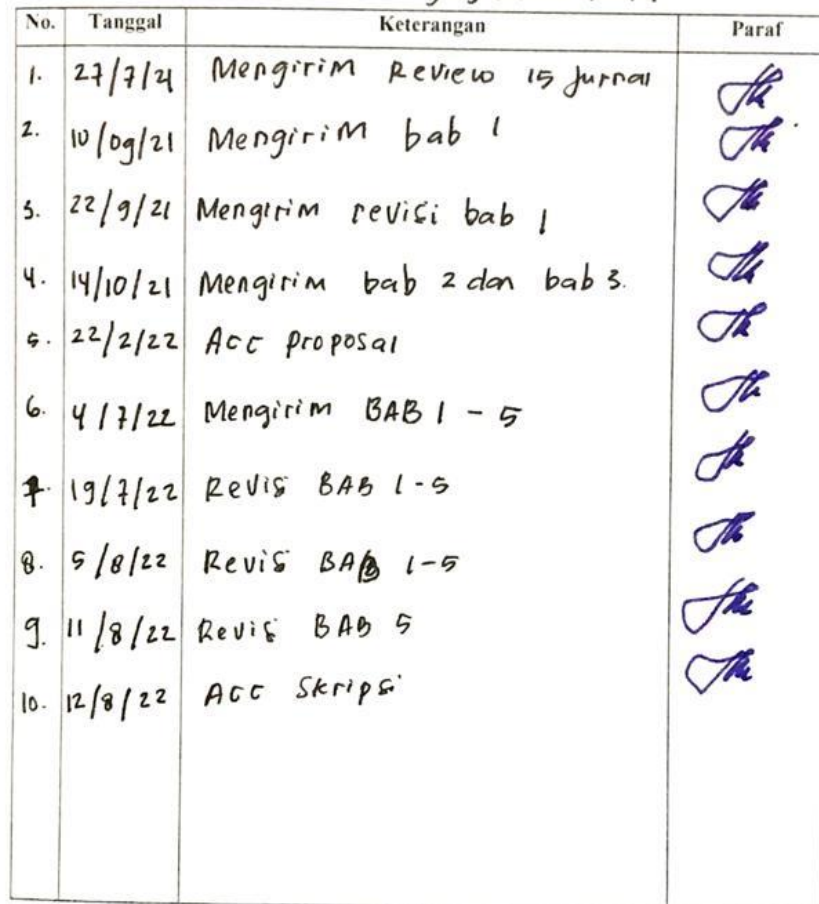 No. Tanggal Keterangan Paraf
1. 27/7/21 Mengirim Review 15 Jurnal
2. 10/09/21 Mengirim bab 1
3. 22/9/21 Mengirim revisi bab 1
4. 14/10/21 Mengirim bab 2 dan bab 3.
5. 22/2/22 Acc proposal
6. 4/7/22 Mengirim BAB 1 - 5
7. 19/7/22 Revis BAB 1-5
8. 5/8/22 Revis BAB 1-5
9. 11/8/22 Revis BAB 5
10. 12/8/22 Acc Skripsi